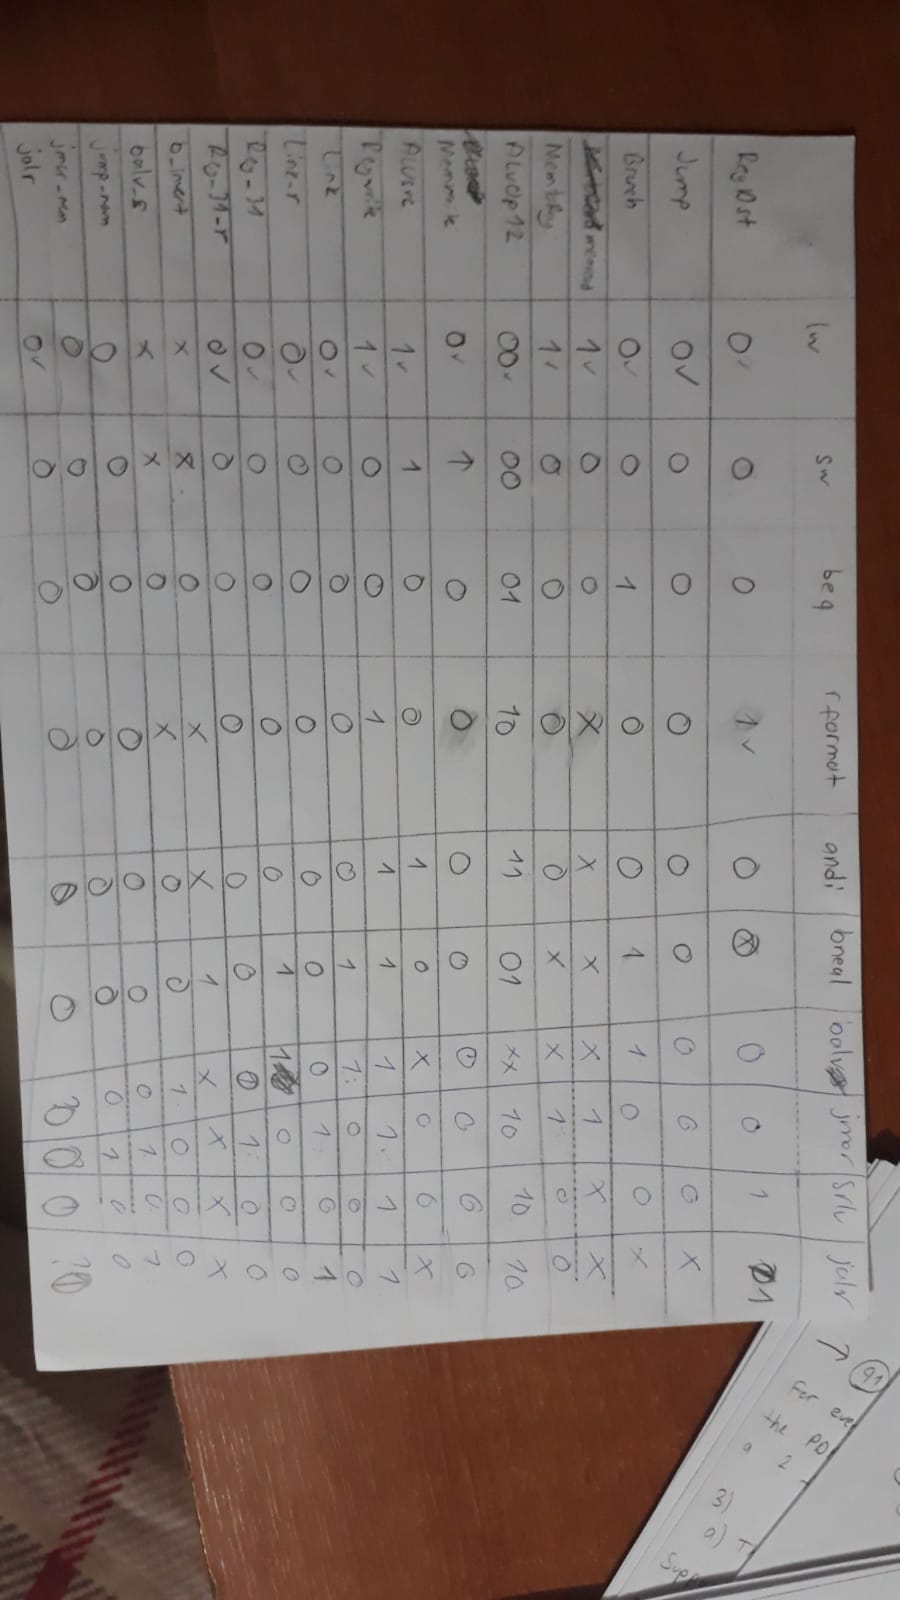 lw sw beq rformat andi bneal balv jmor srlv jalr
RegDst 0✓ 0 0 1✓ 0 0 0 1 1
Jump 0✓ 0 0 0 0 0 0 0 0 X
Branch 0✓ 0 1 0 0 1 1 0 0 X
memread 1✓ 0 0 X X X X 1 X X
MemtoReg 1✓ 0 0 0 0 X X 1 0 0
ALUOp12 00✓ 00 01 10 11 01 XX 10 10 10
Memwrite 0✓ 1 0 0 0 0 0 0 0 0
ALUsrc 1✓ 1 0 0 1 0 X 0 0 X
Regwrite 1✓ 0 0 1 1 1 1 1 1 1
Link 0✓ 0 0 0 0 1 1 0 0 0
Link-r 0✓ 0 0 0 0 0 0 1 0 1
Reg-31 0✓ 0 0 0 0 1 1 0 0 0
Reg-31-r 0✓ 0 0 0 0 0 0 1 0 0
b_invert X X 0 X X 1 X X X X
balv_s X X 0 X 0 0 1 0 0 0
jump-mem 0 0 0 0 0 0 0 1 0 1
jmor_mem 0 0 0 0 0 0 0 1 0 0
jalr 0✓ 0 0 0 0 0 0 0
91
for
the
2
3)
a)